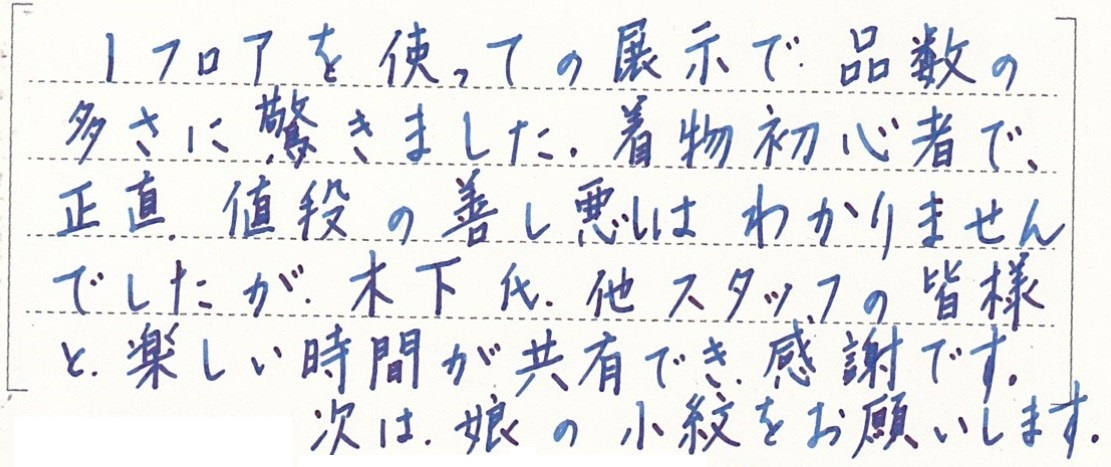 1フロアを使っての展示で品数の
多さに驚きました。着物初心者で、
正直、値段の善し悪しはわかりません
でしたが、木下氏、他スタッフの皆様
と、楽しい時間が共有でき、感謝です。
次は、娘の小紋をお願いします。